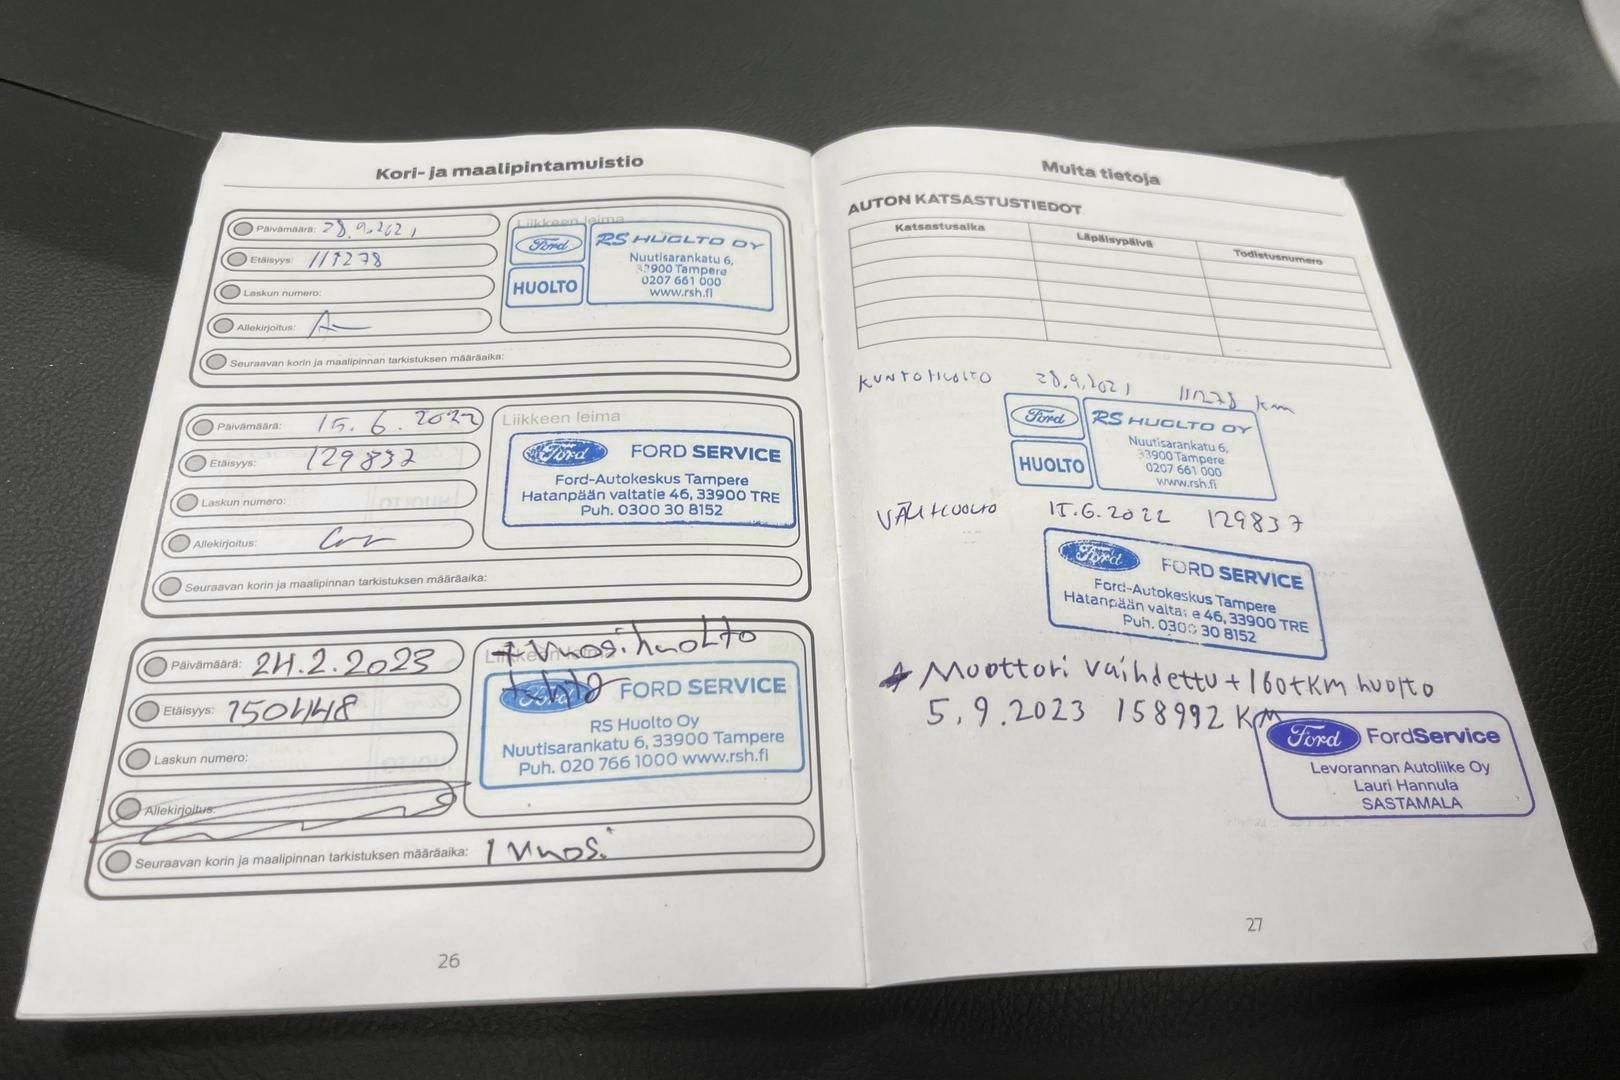 Kori- ja maalipintamuistio
Päivämäärä: 28.9.2021
Etäisyys: 111278
Laskun numero:
Allekirjoitus:
Seuraavan korin ja maalipinnan tarkistuksen määräaika:
Liikkeen leima
Ford
HUOLTO
RS HUOLTO OY
Nuutisarankatu 6,
33900 Tampere
0207 661 000
www.rsh.fi
Päivämäärä: 15.6.2022
Etäisyys: 129837
Laskun numero:
Allekirjoitus:
Seuraavan korin ja maalipinnan tarkistuksen määräaika:
Liikkeen leima
Ford FORD SERVICE
Ford-Autokeskus Tampere
Hatanpään valtatie 46, 33900 TRE
Puh. 0300 30 8152
Päivämäärä: 24.2.2023
Etäisyys: 150448
Laskun numero:
Allekirjoitus:
Seuraavan korin ja maalipinnan tarkistuksen määräaika: 1 vuosi
Liikkeen leima
+ Vuosihuolto
tehty
Ford FORD SERVICE
RS Huolto Oy
Nuutisarankatu 6, 33900 Tampere
Puh. 020 766 1000 www.rsh.fi
26
Muita tietoja
AUTON KATSASTUSTIEDOT
Katsastusaika Läpäisypäivä Todistusnumero
KUNTOHUOLTO 28.9.2021 111278 km
Ford
HUOLTO
RS HUOLTO OY
Nuutisarankatu 6,
33900 Tampere
0207 661 000
www.rsh.fi
VÄLIHUOLTO 15.6.2022 129837
Ford FORD SERVICE
Ford-Autokeskus Tampere
Hatanpään valtatie 46, 33900 TRE
Puh. 0300 30 8152
+ Moottori vaihdettu + 160tkm huolto
5.9.2023 158992 KM
Ford FordService
Levorannan Autoliike Oy
Lauri Hannula
SASTAMALA
27